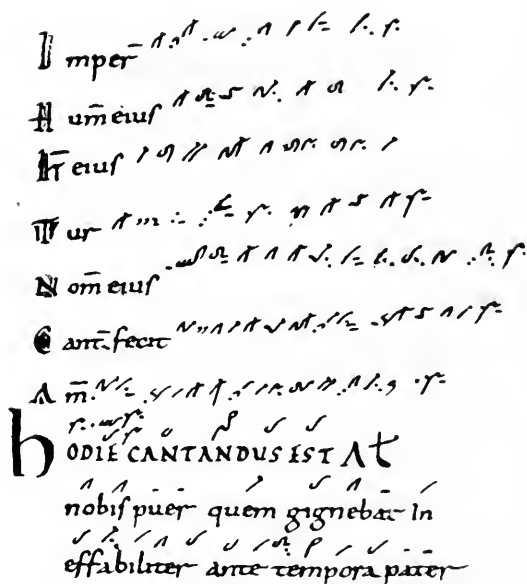 Imper̄
Hum̄ eiuſ
eiuſ
Tur
Nom̄ eiuſ
Cant̄. fecit
Am̄.
hODIE CANTANDUS EST
nobiſ puer quem gignebat In
effabiliter ante tempora pater